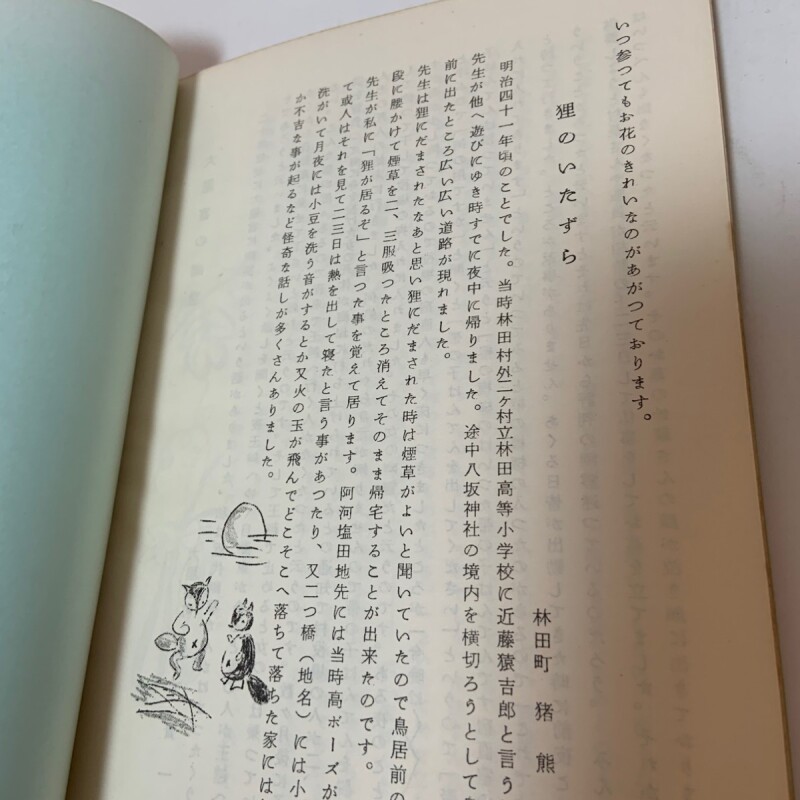 いつ参つてもお花のきれいなのがあがつております。
狸のいたずら
林田町　猪　熊
明治四十一年頃のことでした。当時林田村外二ヶ村立林田高等小学校に近藤猿吉郎と言う
先生が他へ遊びにゆき時すでに夜中に帰りました。途中八坂神社の境内を横切ろうとして
前に出たところ広い広い道路が現れました。
先生は狸にだまされたなあと思い狸にだまされた時は煙草がよいと聞いていたので鳥居前の
段に腰かけて煙草を二、三服吸つたところ消えてそのまま帰宅することが出来たのです。
先生が私に「狸が居るぞ」と言つた事を覚えて居ります。阿河塩田地先には当時高ボーズが
て或人はそれを見て二三日は熱を出して寝たと言う事があつたり、又二つ橋（地名）には小
洗がいて月夜には小豆を洗う音がするとか又火の玉が飛んでどこそこへ落ちて落ちた家には
か不吉な事が起るなど怪奇な話しが多くさんありました。